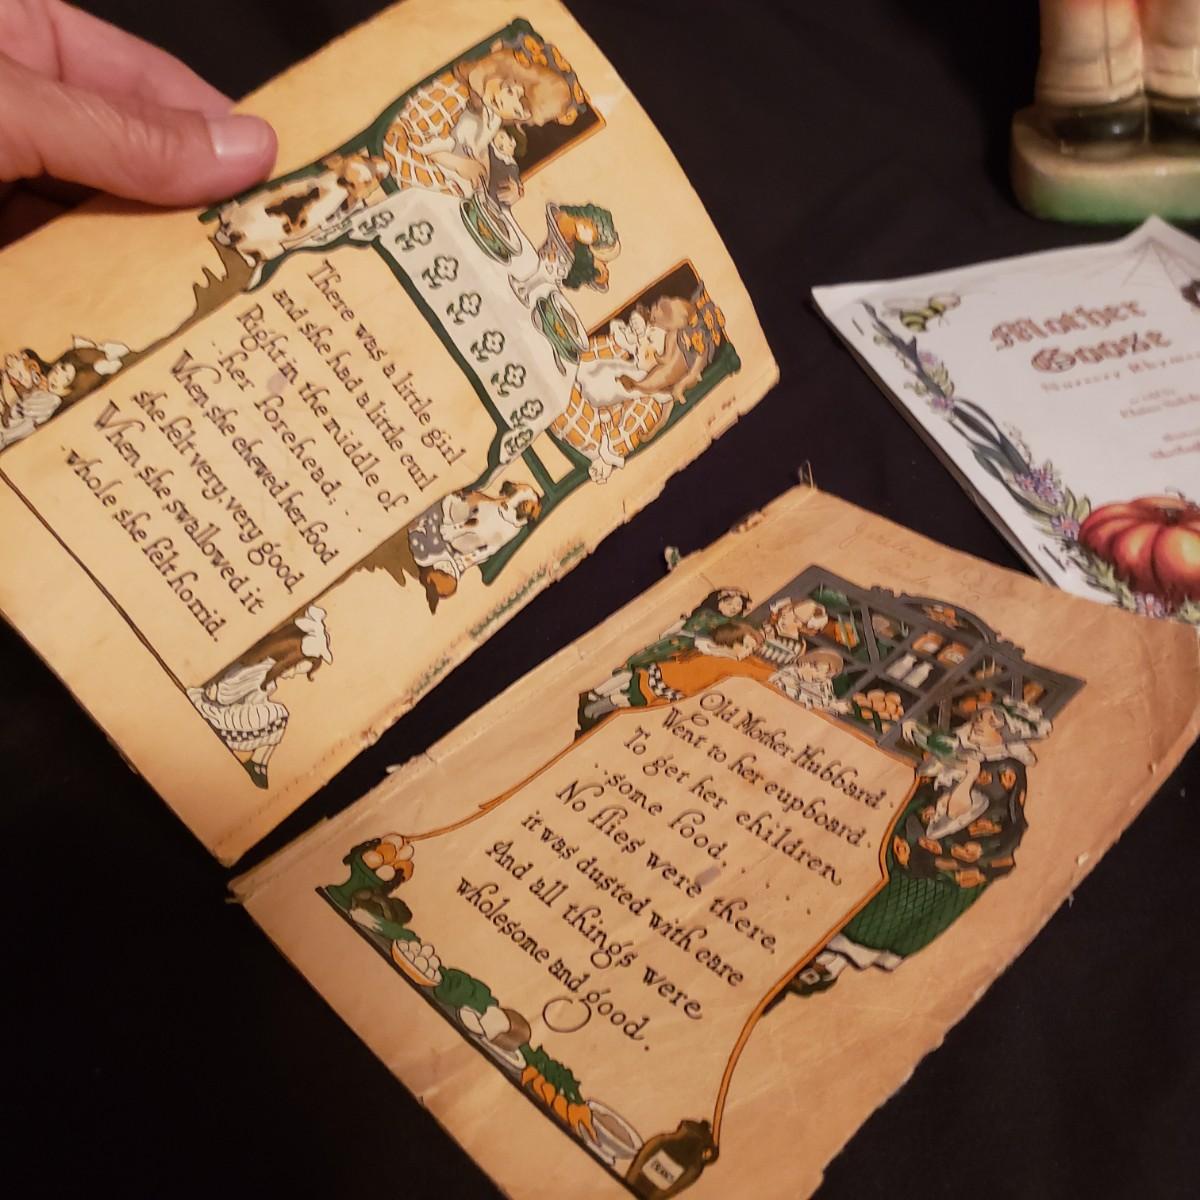 There was a little girl
and she had a little curl
Right in the middle of
her forehead,
When she chewed her food
she felt very, very good,
When she swallowed it
whole she felt horrid.
Old Mother Hubbard
Went to her cupboard
To get her children
some food,
No flies were there,
it was dusted with care
And all things were
wholesome and good.
Mother
Goose
Nursery